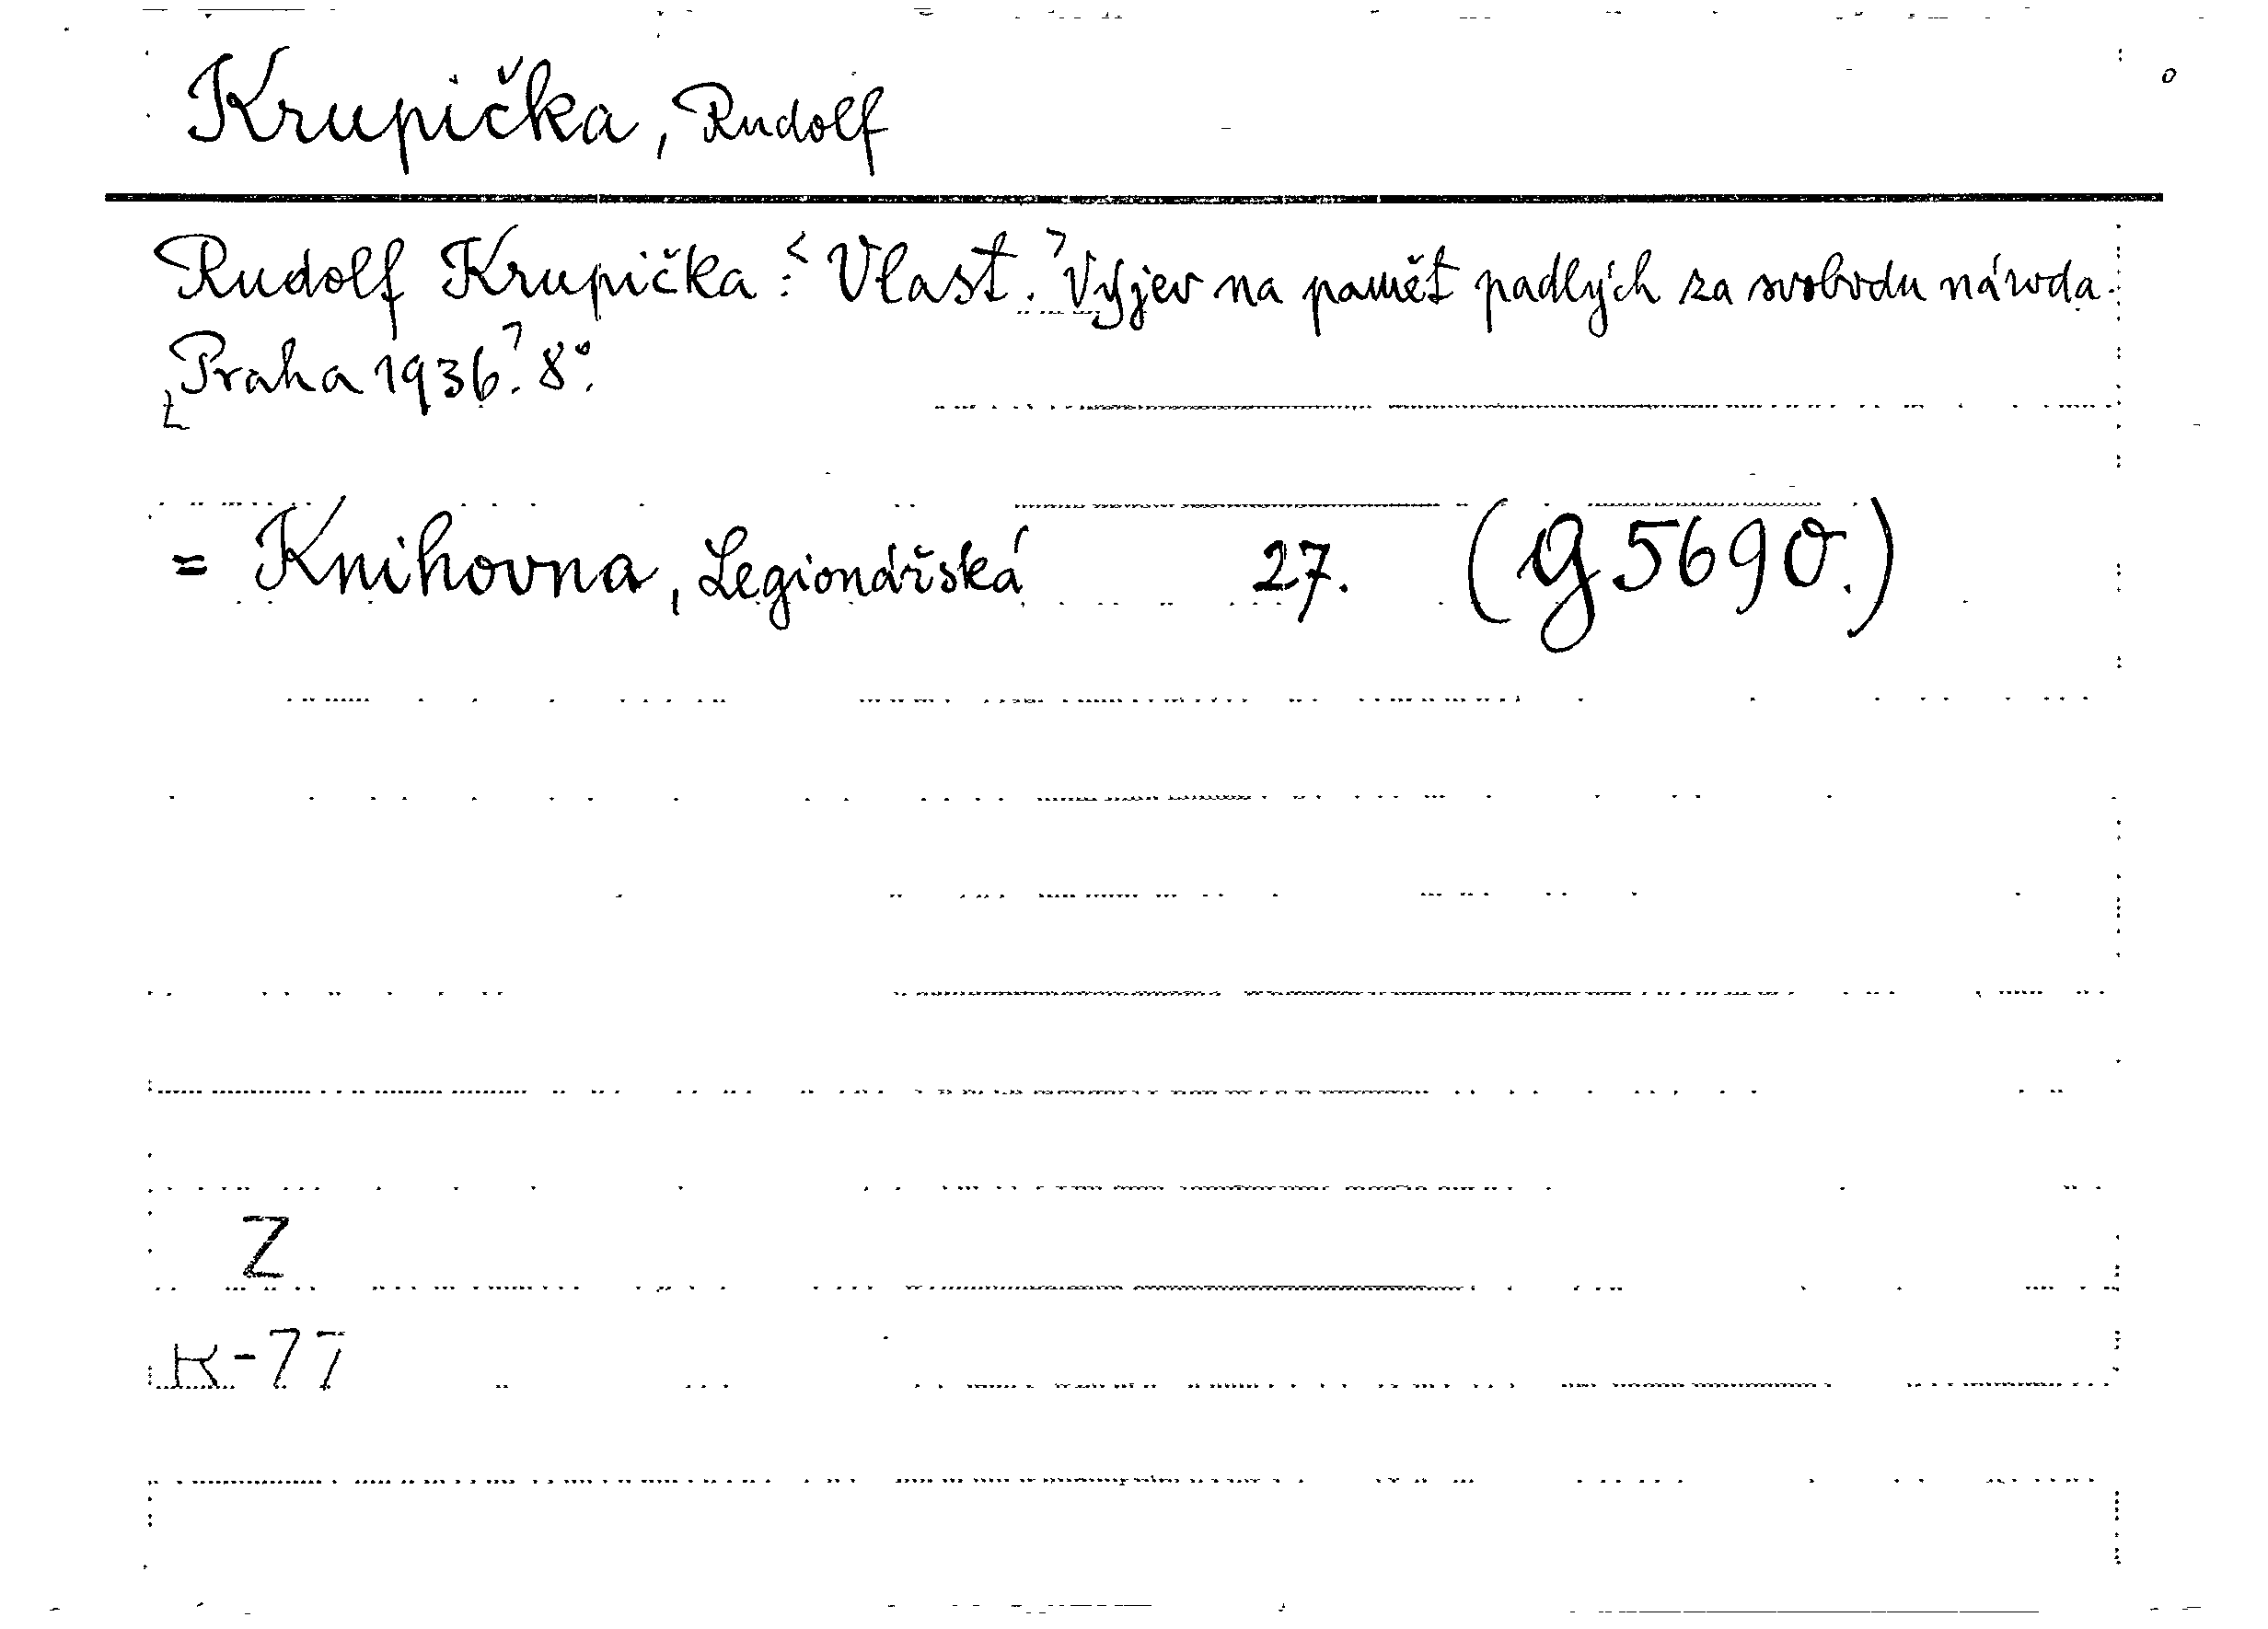 Krupička, Rudolf
Rudolf Krupička: <Vlast.> Výjev na paměť padlých za svobodu národa.
[Praha 1936]. 8°.
= Knihovna, Legionářská 27. (G 5690.)
Z
R-77